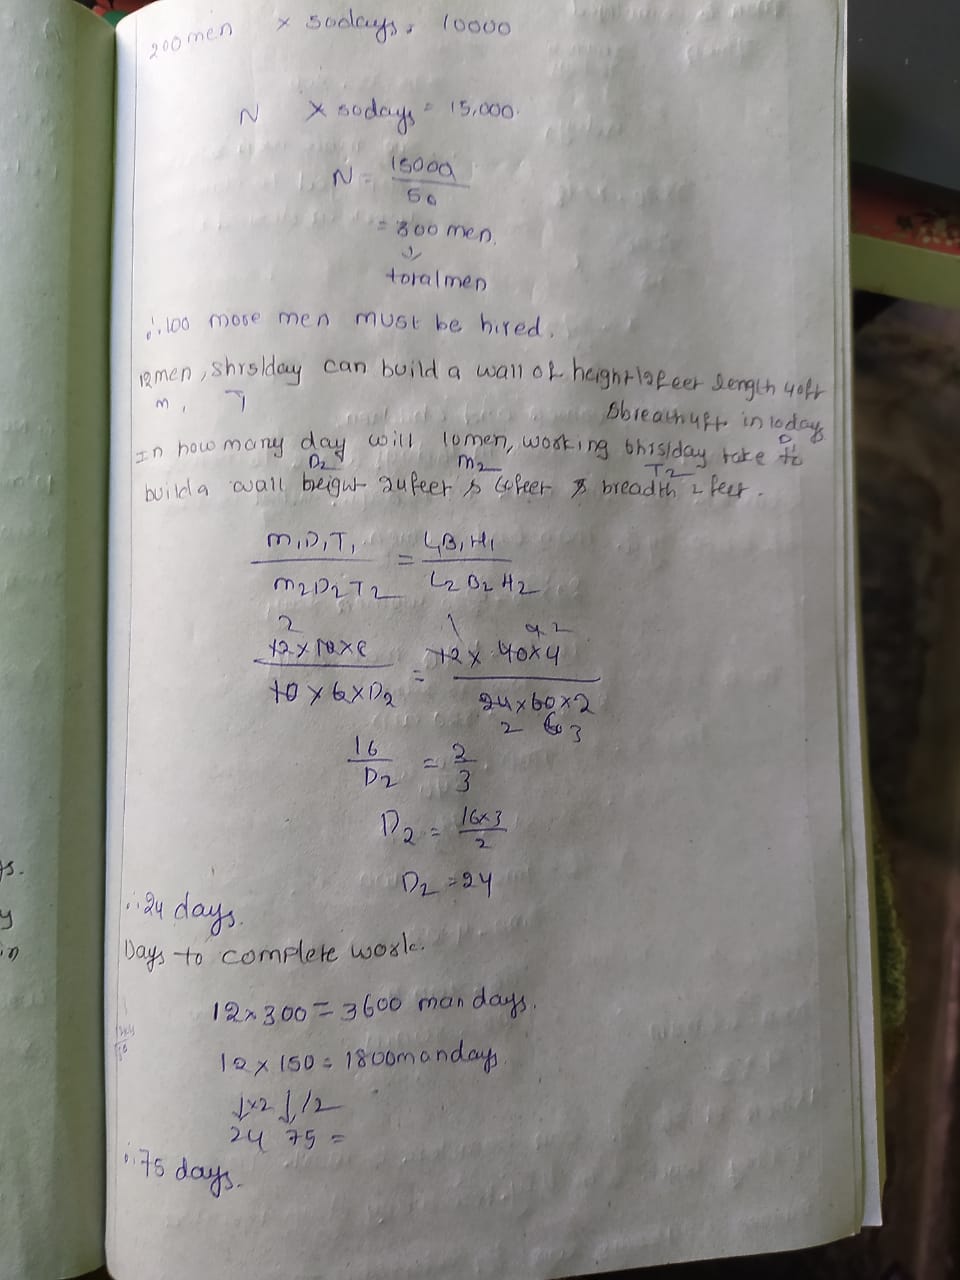 200men × 50days = 10000
N × 50days = 15,000.
N = 15000
50
= 300 men.
total men
∴ 100 more men must be hired.
12men, 8hrs/day can build a wall of height 12feer length 40ft
M, T
& breath 4ft in 10days
In how many day will 10men, working 6hrs/day take to
D2 M2 T2 D
build a wall heigut 24feer & 60feer & breadth 2 feer.
M1D1T1 = L1B1H1
M2D2T2 L2B2H2
2 1 2
12×10×8 = 12× 40×4
10×6×D2 24×60×2
2 3
16 = 2
D2 3
D2 = 16×3
2
D2 = 24
∴ 24 days.
Days to complete work.
12×300 = 3600 man days.
12×150 = 1800mandays.
↓×2 ↓/2
24 75 =
∴ 75 days.